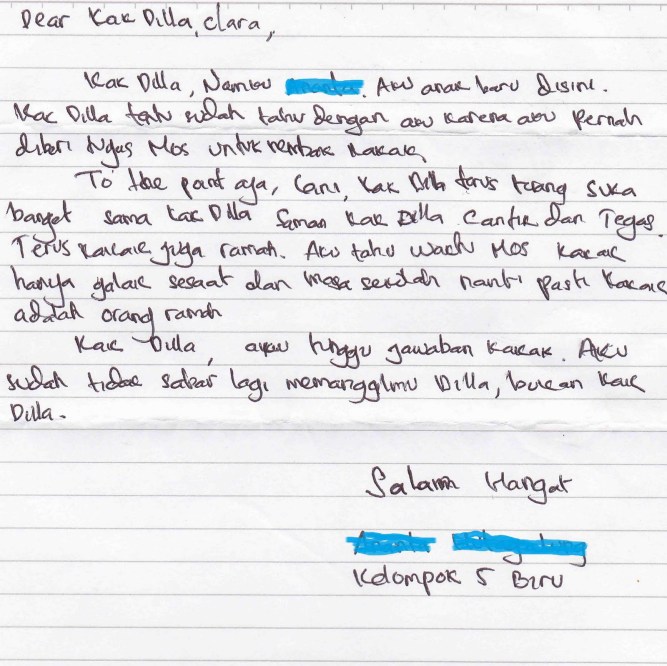 Dear Kak Dilla, Clara,
Kak Dilla, Namau. Aku anak baru disini.
Kak Dilla tentu sudah tahu dengan aku karena aku pernah
diberi tugas Mos untuk nembak kakak.
To the point aja, Kak Dilla terus terang suka
banget sama kak Dilla Kak Dilla Cantik dan Tegas.
Terus kakak juga ramah. Aku tahu waktu Mos kakak
hanya galak sesaat dan masa sekolah nanti pasti kakak
adalah orang ramah
Kak Dilla, aku tunggu jawaban kakak. Aku
sudah tidak sabar lagi memanggilmu Dilla, bukan Kak
Dilla.
Salam Hangat
Kelompok 5 Biru